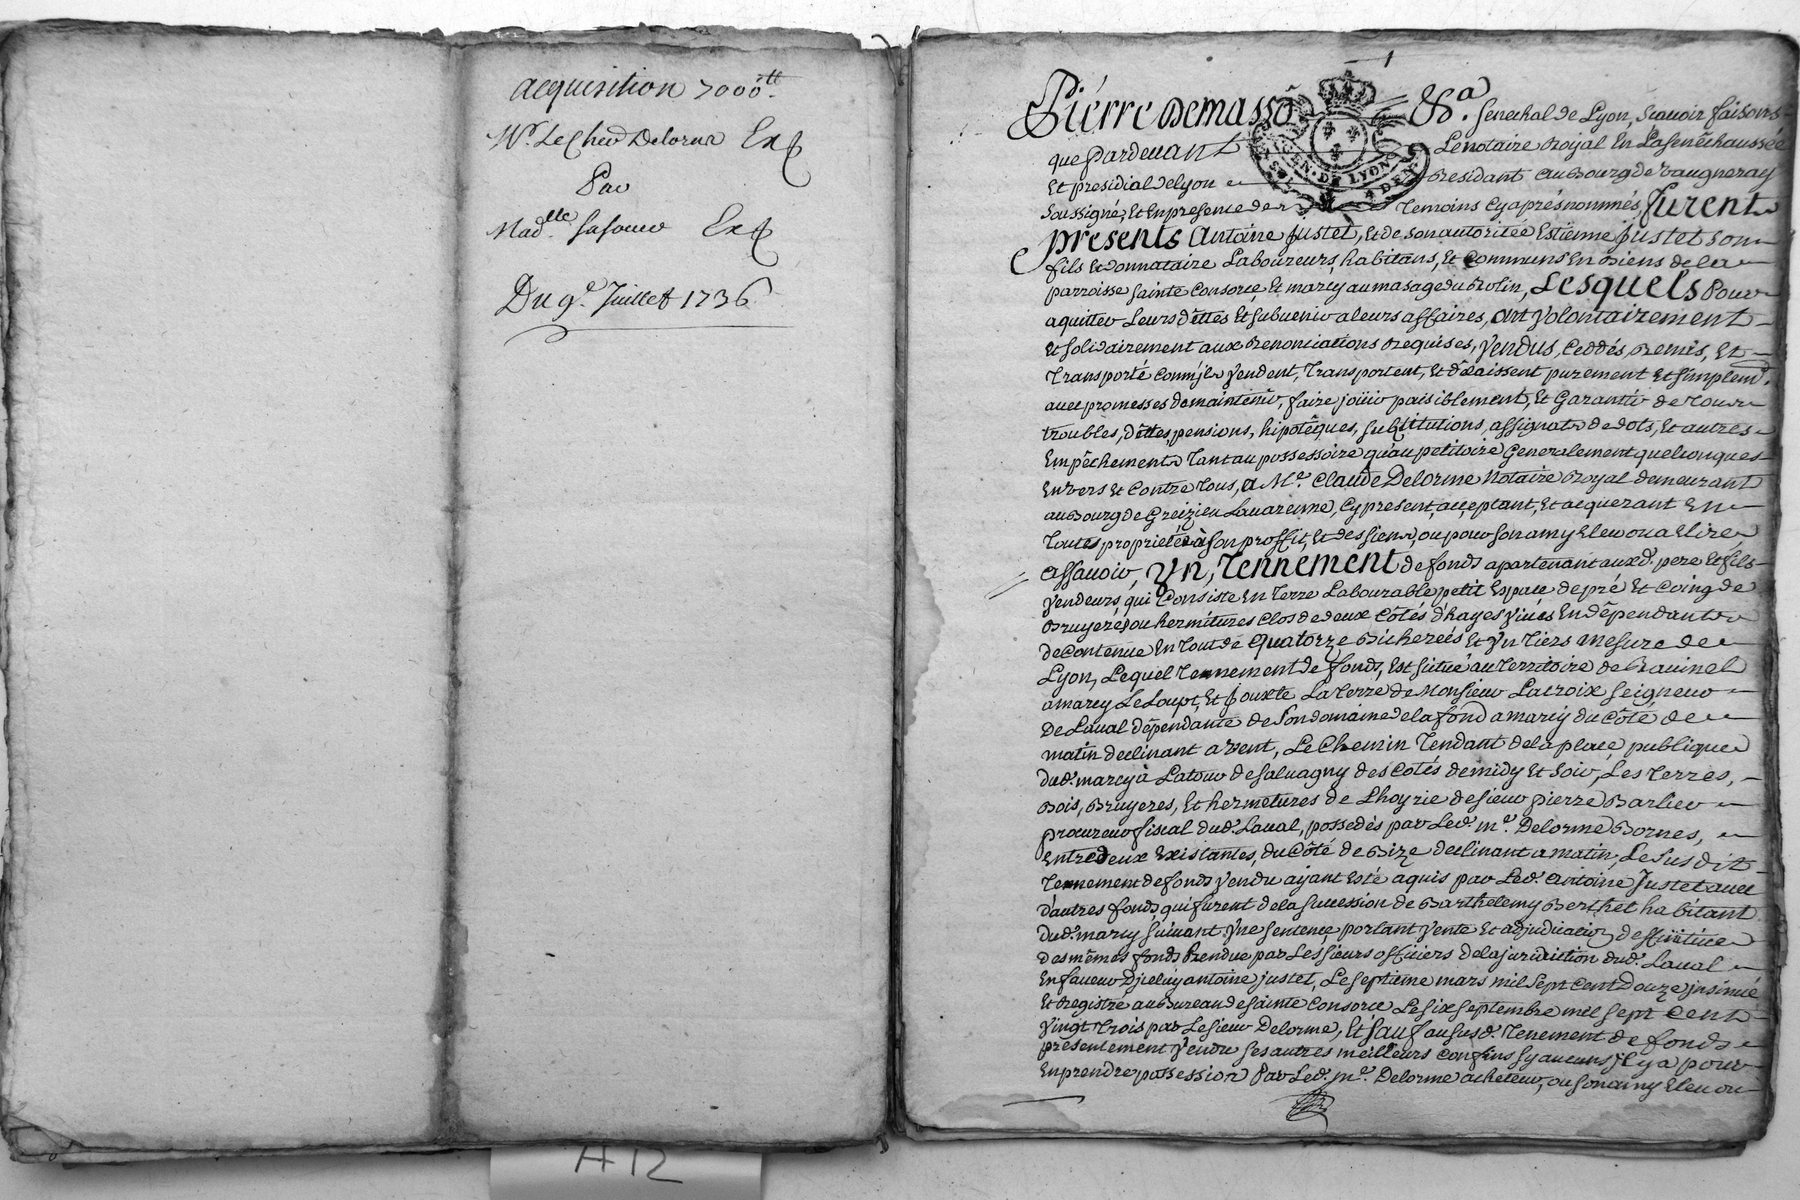 acquisition 7000tt
Mr. Le Cher Delorme Exp
Par
Madlle Exp
Du 9e. Juillet 1736
1
Pierre Demasso &a. Senechal de Lyon, Scavoir faisons
que Pardevant Le notaire Royal En La senêchaussée
Et presidial de Lyon Residant au Bourg de Vaugneray
Soussigné, Et En presence de temoins Cy aprés nommés, furent
presents Antoine Justet, Et de son autoritée Estienne Justet son
fils Et donnataire Laboureurs, habitans, Et Communs En Biens de la
parroisse Sainte Consorce, Et marcy au masage du Rolin, Lesquels Pour
aquitter Leurs dêttes Et Subvenir a leurs affaires, ont Volontairement
Et Solidairement aux Renonciations Requises, Vendus, Ceddés, Remis, Et
Transporté Comm'jls Vendent, Transportent, Et délaissent purement Et Simplemt.
avec promesses de maintenir, faire joüir paisiblement, Et Garantir de Tous
troubles, dêttes, pensions, hipotêques, Substitutions, assignats de dots, Et autres
Empêchements Tant au possessoire qu'au petitoire Generalement quelconques
Envers Et Contre Tous, a Me. Claude Delorme Notaire Royal demeurant
au Bourg de Greizieu Lavarenne, Cy present, acceptant, Et acquerant En
Toutes proprietés à son proffit, Et des siens, ou pour son amy Eleu ou a Elire
assavoir, Un, Tennement de fonds apartenant auxd. pere Et fils
Vendeurs, qui Consiste En Terre Labourable petit Espace de pré Et Coing de
Bruyeres, ou hermitures Clos de deux Côtés d'hayes Vives En dêpendants
de Contenue En Tout de quatorze Bicherées Et Un Tiers mesure de
Lyon, Lequel Tennement de fonds, Est situé au Territoire de Ravinel
a marcy Le Loupt, Et Jouxte La Terre de Monsieur Lacroix Seigneur
De Laval dépendante de Son domaine de la fond a marcy du Côté de
matin declinant a Vent, Le Chemin Tendant de la place, publique
dud. marcy à Latour de Salvagny des Cotés de midy Et Soir, Les Terres,
Bois, Bruyeres, Et hermetures de L'hoyrie de sieur pierre Barlier
procureur fiscal dud. Laval, possedés par Led. me. Delorme Bornes,
Entredeux Existantes, du Côté de Bize declinant a matin, Le Sus dit
Tennement de fonds Vendu ayant Esté aquis par Led. Antoine Justet avec
d'autres fonds qui furent de la Succession de Barthelemy Berthet habitant
dud. marcy Suivant Une Sentence portant Vente Et adjudication deffinitive
des mêmes fonds Rendue par Les Sieurs officiers de la juridiction dud. Laval
En faveur D'jceluy antoine justet, Le Septieme mars mil Sept Cent Douze jnsinué
Et Registré au Bureau de Sainte Consorce Le Six Septembre mil Sept Cent
Vingt Trois par Le sieur Delorme, Et Sauf au Susd. Tenement de fonds
présentement Vendu Ses autres meilleurs Confins Sy aucuns jl y a pour
En prendre possession Par Led. me. Delorme acheteur, ou Son amy Eleu ou
A12